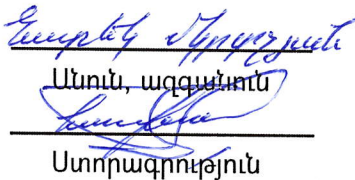 Նարեկ Մկրտչյան
Անուն, ազգանուն
Ստորագրություն